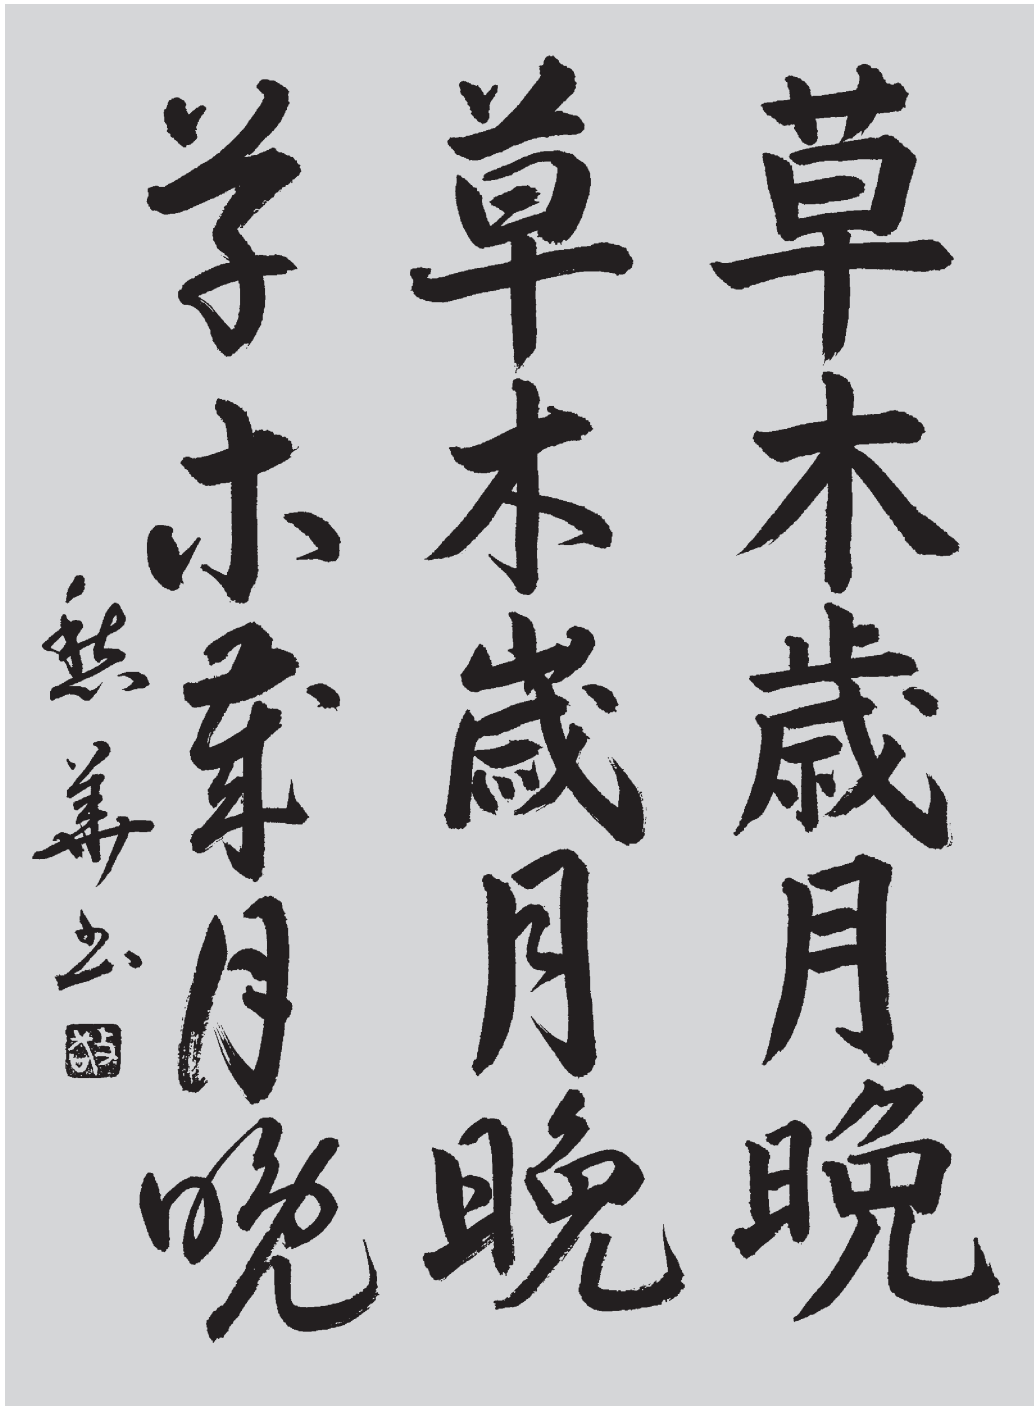 草木歳月晩
草木歳月晩
草木歳月晩
愁華書